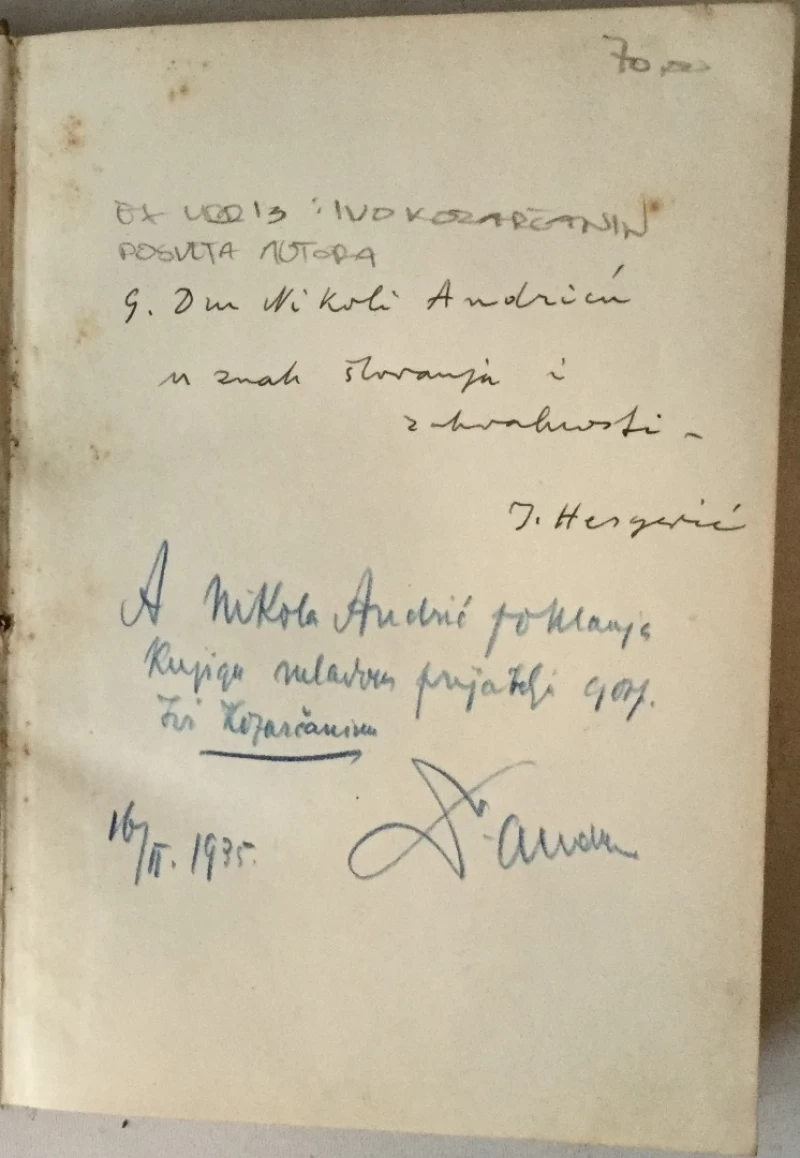 70,00
EX LIBRIS : IVO KOZARČANIN
POSVETA AUTORA
G. Dru Nikoli Andriću
u znak štovanja i
zahvalnosti -
I. Hergešić
A Nikola Andrić poklanja
knjigu mladom prijatelji gosp.
Ivi Kozarčaninu
16/II. 1935.
Dr. Andrić